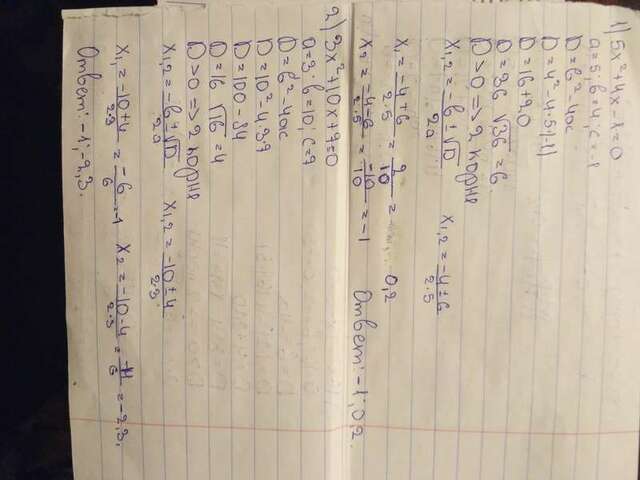 1) 5x²+4x-1=0
a=5; b=4; c=-1
D=b²-4ac
D=4²-4·5·(-1)
D=16+20
D=36 √36=6
D>0 => 2 корня
x₁,₂=-b±√D/2a x₁,₂=-4±6/2·5
x₁=-4+6/2·5=2/10=0,2
x₂=-4-6/2·5=-10/10=-1 Ответ: -1; 0,2.
2) 3x²+10x+7=0
a=3; b=10; c=7
D=b²-4ac
D=10²-4·3·7
D=100-84
D=16 √16=4
D>0 => 2 корня
x₁,₂=-b±√D/2a x₁,₂=-10±4/2·3
x₁=-10+4/2·3=-6/6=-1 x₂=-10-4/2·3=-14/6=-2,3.
Ответ: -1; -2,3.